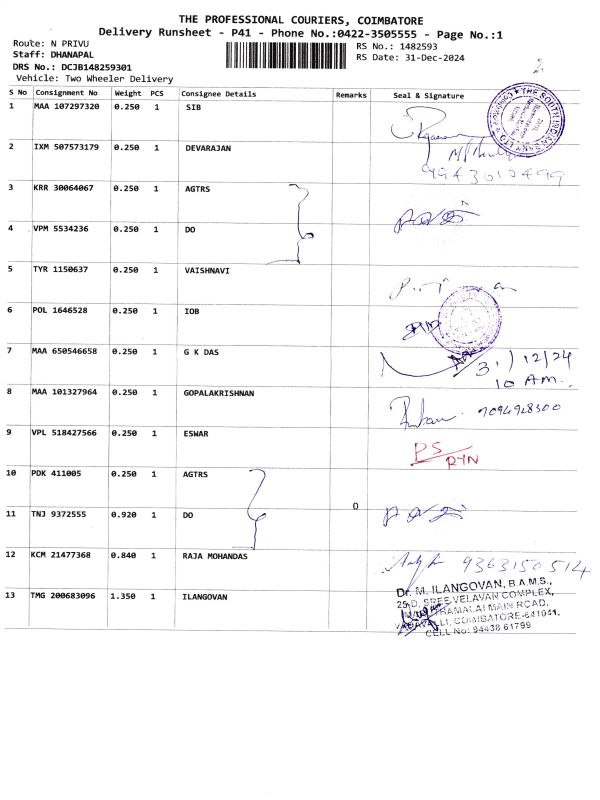 THE PROFESSIONAL COURIERS, COIMBATORE
Delivery Runsheet - P41 - Phone No.:0422-3505555 - Page No.:1
Route: N PRIVU
RS No.: 1482593
Staff: DHANAPAL
RS Date: 31-Dec-2024
DRS No.: DCJB148259301
Vehicle: Two Wheeler Delivery
S No Consignment No Weight PCS Consignee Details Remarks Seal & Signature
1 MAA 107297320 0.250 1 SIB
2 IXM 507573179 0.250 1 DEVARAJAN
3 KRR 30064067 0.250 1 AGTRS
4 VPM 5534236 0.250 1 DO
5 TYR 1150637 0.250 1 VAISHNAVI
6 POL 1646528 0.250 1 IOB
7 MAA 650546658 0.250 1 G K DAS 31/12/24
10 AM.
8 MAA 101327964 0.250 1 GOPALAKRISHNAN 7094928300
9 VPL 518427566 0.250 1 ESWAR PS
10 PDK 411005 0.250 1 AGTRS
0
11 TNJ 9372555 0.920 1 DO
12 KCM 21477368 0.840 1 RAJA MOHANDAS 9363150514
13 TMG 200683096 1.350 1 ILANGOVAN
Dr. M. ILANGOVAN, B.A.M.S.,
25/D, SREE VELAVAN COMPLEX,
MAIN ROAD,
COIMBATORE-641041.
CELL No: 94438 61799